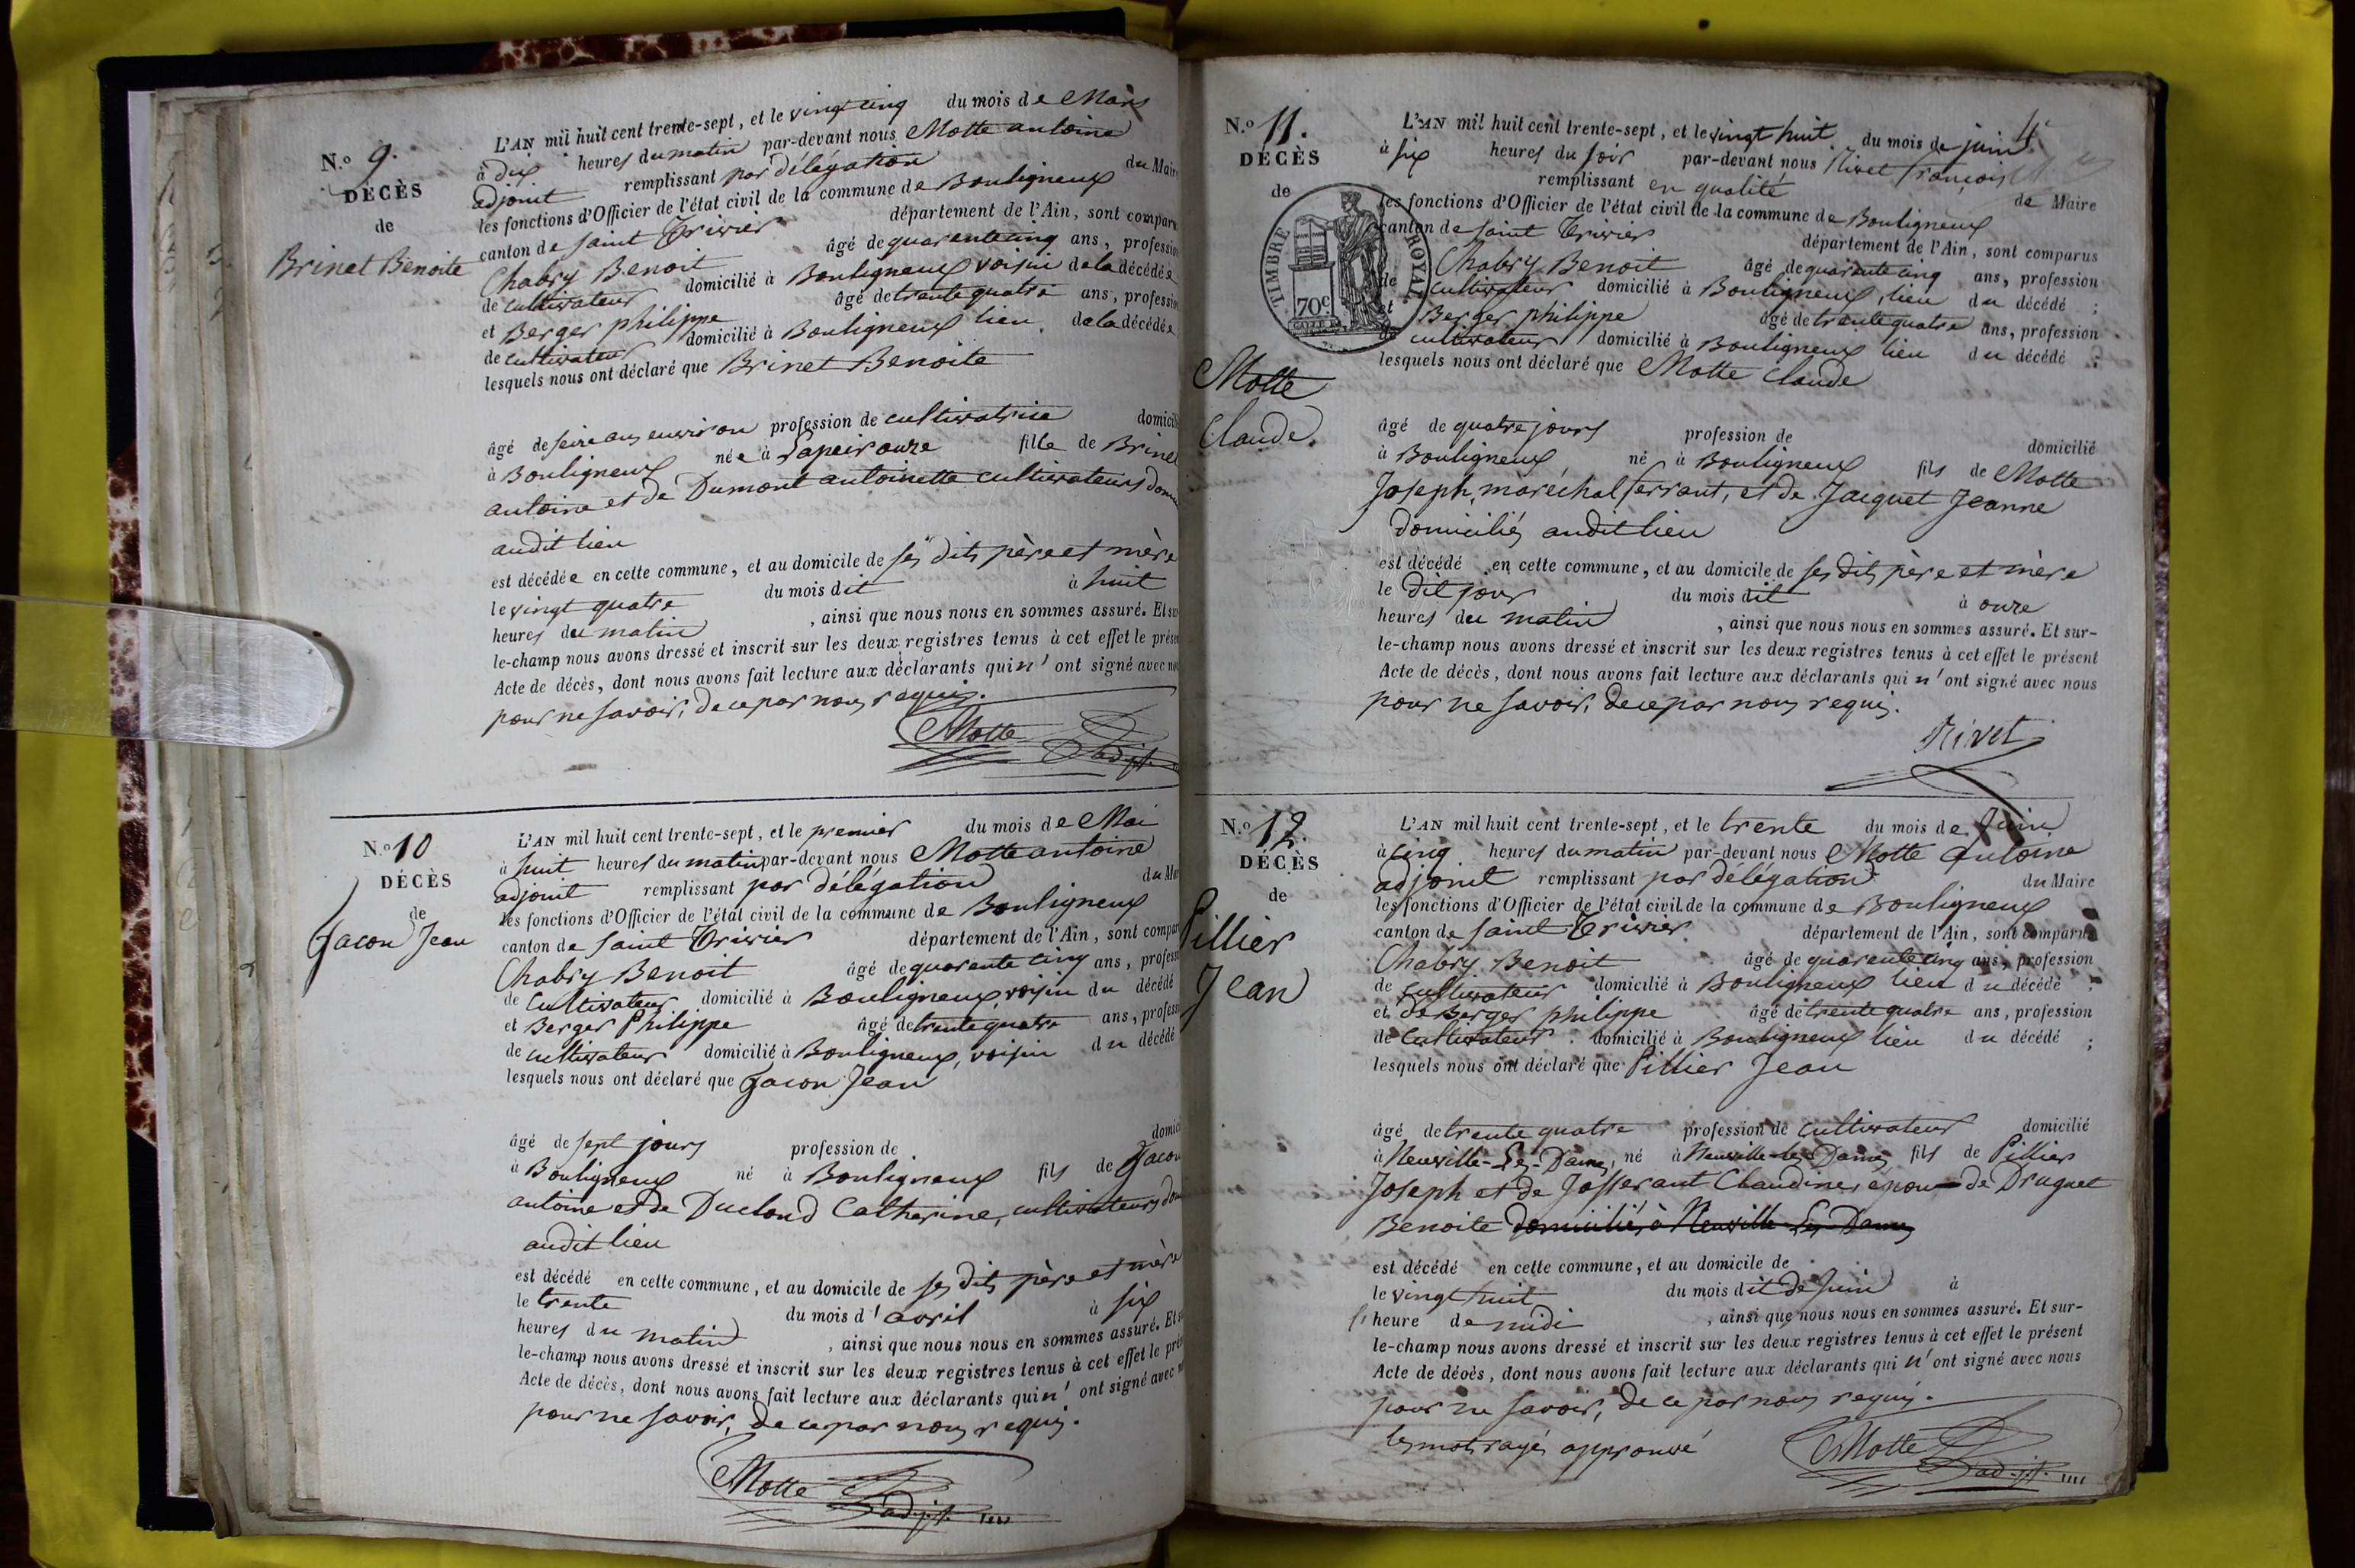 N.º 9.
DÉCÈS
de
Brinet Benoite
L'AN mil huit cent trente-sept, et le vingt cinq du mois de Mars
à dix heures du matin par-devant nous Motte antoine
adjoint remplissant par délégation du Maire
les fonctions d'Officier de l'état civil de la commune de Bouligneux
canton de saint Trivier département de l'Ain, sont comparus
Chabry Benoit âgé de quarente cinq ans, profession
de cultivateur domicilié à Bouligneux voisin de la décédée
et Berger philippe âgé de trente quatre ans, profession
de cultivateur domicilié à Bouligneux lieu de la décédée
lesquels nous ont déclaré que Brinet Benoite
âgé de seize ans environ profession de cultivatrice domicilié
à Bouligneux née à Lapeirouze fille de Brinet
antoine et de Dumont antoinette cultivateurs dom
audit lieu
est décédée en cette commune, et au domicile de ses dits père et mère
le vingt quatre du mois dit à huit
heures du matin , ainsi que nous nous en sommes assuré. Et sur
le-champ nous avons dressé et inscrit sur les deux registres tenus à cet effet le présent
Acte de décès, dont nous avons fait lecture aux déclarants qui n'ont signé avec nous
pour ne savoir, de ce par nous requis.
Motte adjt
N.º 10
DÉCÈS
de
Jacon Jean
L'AN mil huit cent trente-sept, et le premier du mois de Mai
à huit heures du matin par-devant nous Motte antoine
adjoint remplissant par délégation du Mai
les fonctions d'Officier de l'état civil de la commune de Bouligneux
canton de saint Trivier département de l'Ain, sont compar
Chabry Benoit âgé de quarente cinq ans, profess
de Cultivateur domicilié à Bouligneux voisin du décédé
et Berger Philippe âgé de trente quatre ans, profess
de cultivateur domicilié à Bouligneux, voisin du décédé
lesquels nous ont déclaré que Jacon Jean
âgé de sept jours profession de domic
à Bouligneux né à Bouligneux fils de Jacon
antoine et de Ducloud Catherine, cultivateurs dom
audit lieu
est décédé en cette commune, et au domicile de ses dits père et mère
le trente du mois d'avril à six
heures du matin , ainsi que nous nous en sommes assuré. Et s
le-champ nous avons dressé et inscrit sur les deux registres tenus à cet effet le pré
Acte de décès, dont nous avons fait lecture aux déclarants qui n'ont signé avec n
pour ne savoir, de ce par nous requis.
Motte adjt
N.º 11.
DÉCÈS
de
TIMBRE ROYAL
70c
Motte
Claude.
L'AN mil huit cent trente-sept, et le vingt huit du mois de juin
à six heures du soir par-devant nous Nivet françois
remplissant en qualité de Maire
les fonctions d'Officier de l'état civil de la commune de Bouligneux
canton de saint Trivier département de l'Ain, sont comparus
Chabry Benoit âgé de quarente cinq ans, profession
de cultivateur domicilié à Bouligneux, lieu du décédé ;
et Berger philippe âgé de trente quatre ans, profession
de cultivateur domicilié à Bouligneux lieu du décédé ;
lesquels nous ont déclaré que Motte Claude
âgé de quatre jours profession de domicilié
à Bouligneux né à Bouligneux fils de Motte
Joseph, maréchal ferrant, et de Jacquet Jeanne
domiciliés audit lieu
est décédé en cette commune, et au domicile de ses dits père et mère
le dit jour du mois dit à onze
heures du matin , ainsi que nous nous en sommes assuré. Et sur-
le-champ nous avons dressé et inscrit sur les deux registres tenus à cet effet le présent
Acte de décès, dont nous avons fait lecture aux déclarants qui n'ont signé avec nous
pour ne savoir, de ce par nous requis.
Nivet
N.º 12.
DÉCÈS
de
Pillier
Jean
L'AN mil huit cent trente-sept, et le trente du mois de Juin
à cinq heures du matin par-devant nous Motte antoine
adjoint remplissant par délégation du Maire
les fonctions d'Officier de l'état civil de la commune de Bouligneux
canton de saint Trivier département de l'Ain, sont comparus
Chabry Benoit âgé de quarente cinq ans, profession
de cultivateur domicilié à Bouligneux lieu du décédé ;
et Berger philippe âgé de trente quatre ans, profession
de Cultivateur domicilié à Bouligneux lieu du décédé ;
lesquels nous ont déclaré que Pillier Jean
âgé de trente quatre profession de cultivateur domicilié
à Neuville-Les-Dames, né à Neuville-les-Dames fils de Pillier
Joseph et de Josserant Claudine, époux de Druguet
Benoite domiciliés à Neuville-Les-Dames
est décédé en cette commune, et au domicile de
le vingt huit du mois dit de Juin à
l'heure de midi , ainsi que nous nous en sommes assuré. Et sur-
le-champ nous avons dressé et inscrit sur les deux registres tenus à cet effet le présent
Acte de décès, dont nous avons fait lecture aux déclarants qui n'ont signé avec nous
pour ne savoir, de ce par nous requis.
les mots rayés approuvé
Motte adjt